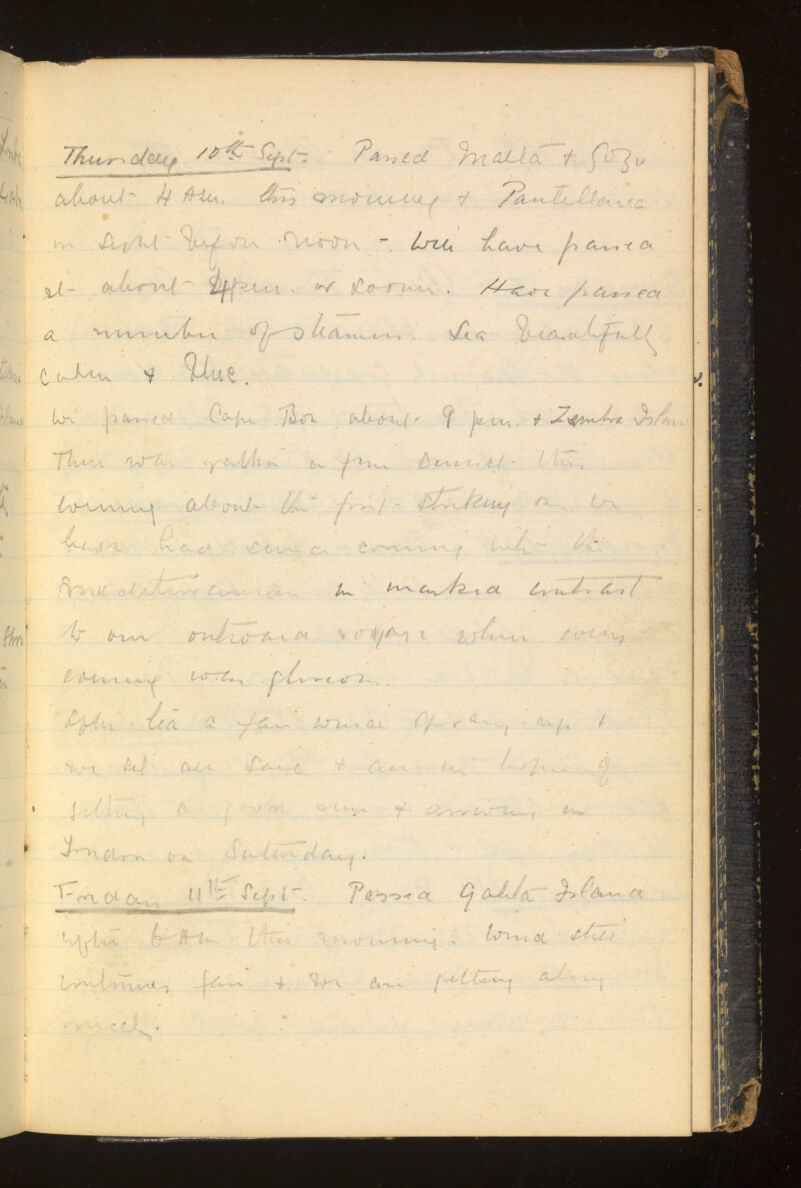 Thursday 10th Sept. Passed Malta & Gozo
about 4 AM. this morning & Pantellaria
in sight before noon - Will have passed
it about 4 pm. or sooner. Have passed
a number of steamers. Sea beautifully
calm & blue.
We passed Cape Bon about 9 pm. & Zembra Island
There was rather a fine sunset this
evening about the first striking one we
have had since coming into the
Mediterranean in marked contrast
to our outward voyage when every
evening was glorious.
After tea a fair wind sprang up &
we set all sail & are in hopes of
getting a good run & arriving in
London on Saturday.
Friday 11th Sept. Passed Galita Island
after 6 AM. this morning. Wind still
continues fair & we are getting along
nicely.